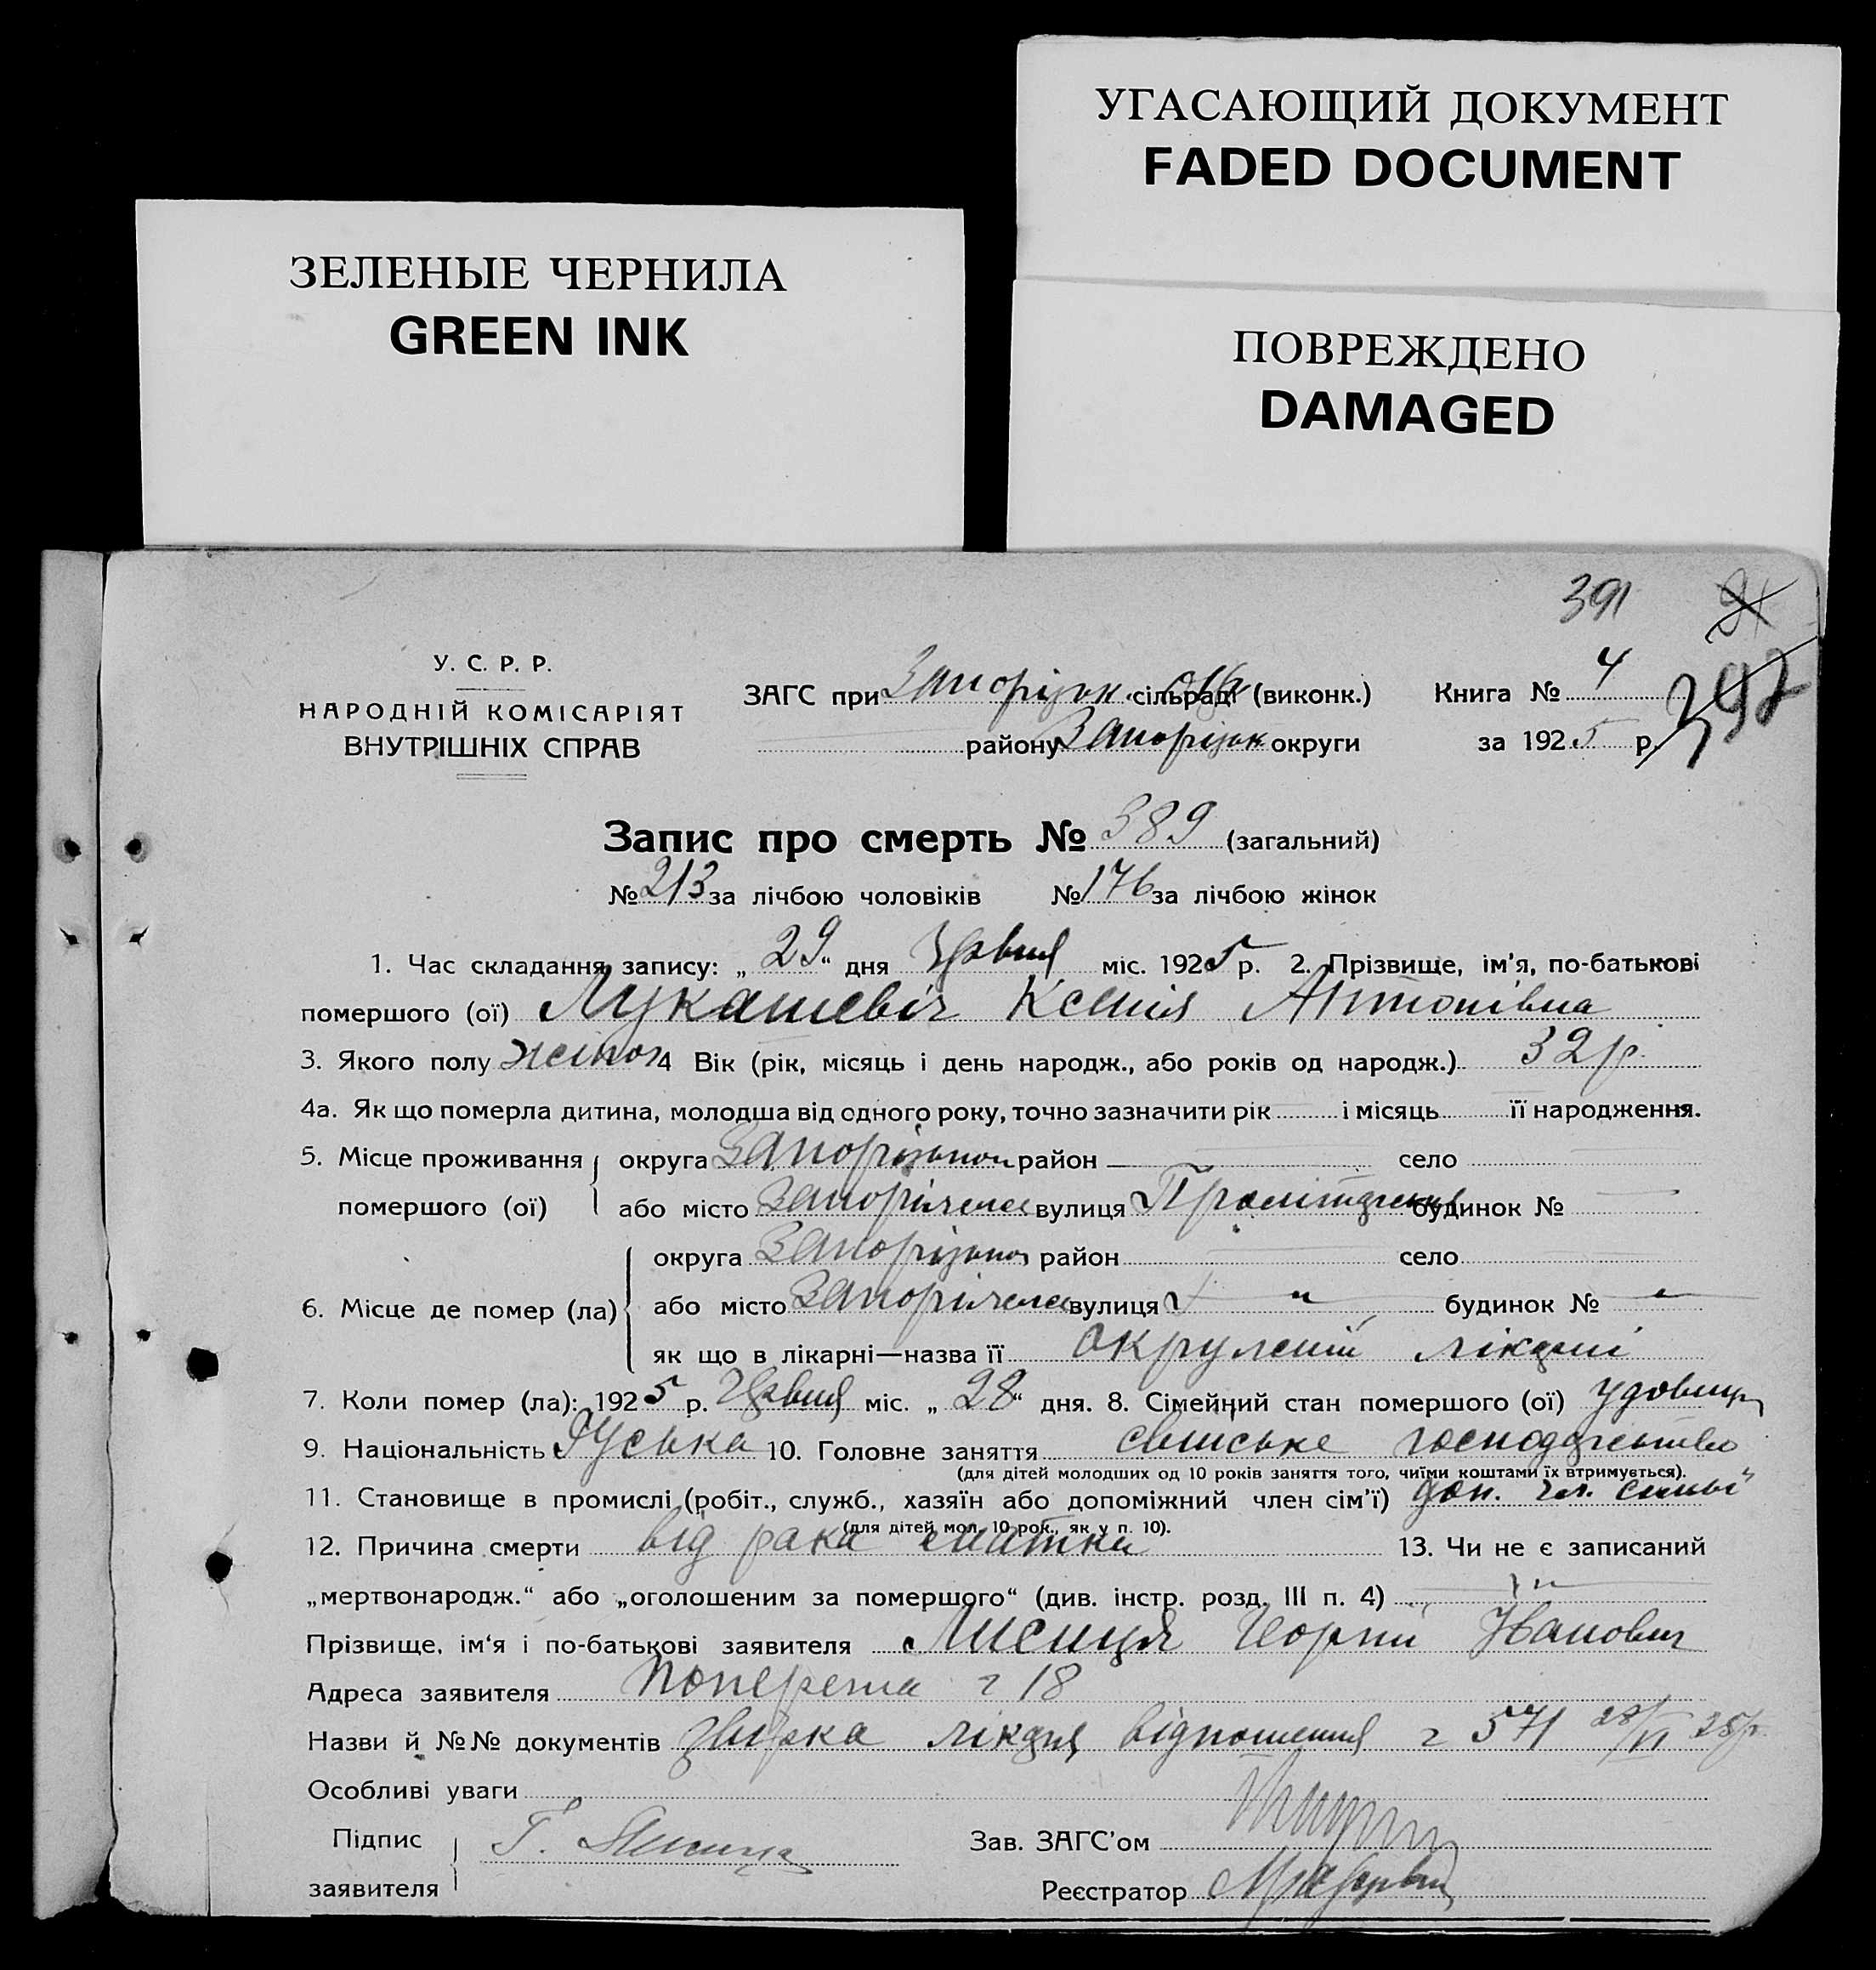 УГАСАЮЩИЙ ДОКУМЕНТ
FADED DOCUMENT
ЗЕЛЕНЫЕ ЧЕРНИЛА
GREEN INK
ПОВРЕЖДЕНО
DAMAGED
391
У. С. Р. Р.
НАРОДНІЙ КОМІСАРІЯТ
ВНУТРІШНІХ СПРАВ
ЗАГС при Запорізьк. сільраді (виконк.) Книга № 4
району Запорізьк округи за 1925 р.
397
Запис про смерть № 389 (загальний)
№ 213 за лічбою чоловіків № 176 за лічбою жінок
1. Час складання запису: „ 29 “ дня Червня міс. 1925 р. 2. Прізвище, ім’я, по-батькові
помершого (ої) Лукашевіч Ксенія Антонівна
3. Якого полу жіноч 4 Вік (рік, місяць і день народж., або років од народж.) 32 р.
4а. Як що померла дитина, молодша від одного року, точно зазначити рік і місяць її народження.
5. Місце проживання округа район село
помершого (ої) або місто вулиця будинок № —
округа район село
6. Місце де помер (ла) або місто вулиця „ будинок № „
як що в лікарні—назва її лікарні
7. Коли помер (ла): 1925 р. Червня міс. „ 28 “ дня. 8. Сімейний стан помершого (ої) удовиця
9. Національність Руська 10. Головне заняття господарство
(для дітей молодших од 10 років заняття того, чиїми коштами їх втримується).
11. Становище в промислі (робіт., служб., хазяїн або допоміжний член сім’ї) доп. чл.
(для дітей мол. 10 рок., як у п. 10).
12. Причина смерти від рака матки 13. Чи не є записаний
„мертвонародж.“ або „оголошеним за помершого“ (див. інстр. розд. III п. 4)
Прізвище, ім‘я і по-батькові заявителя Лисиця Іванович
Адреса заявителя 18
Назви й №№ документів відношення 571 28/VI 25р.
Особливі уваги
Підпис Г. Лисиця Зав. ЗАГС’ом
заявителя Реєстратор